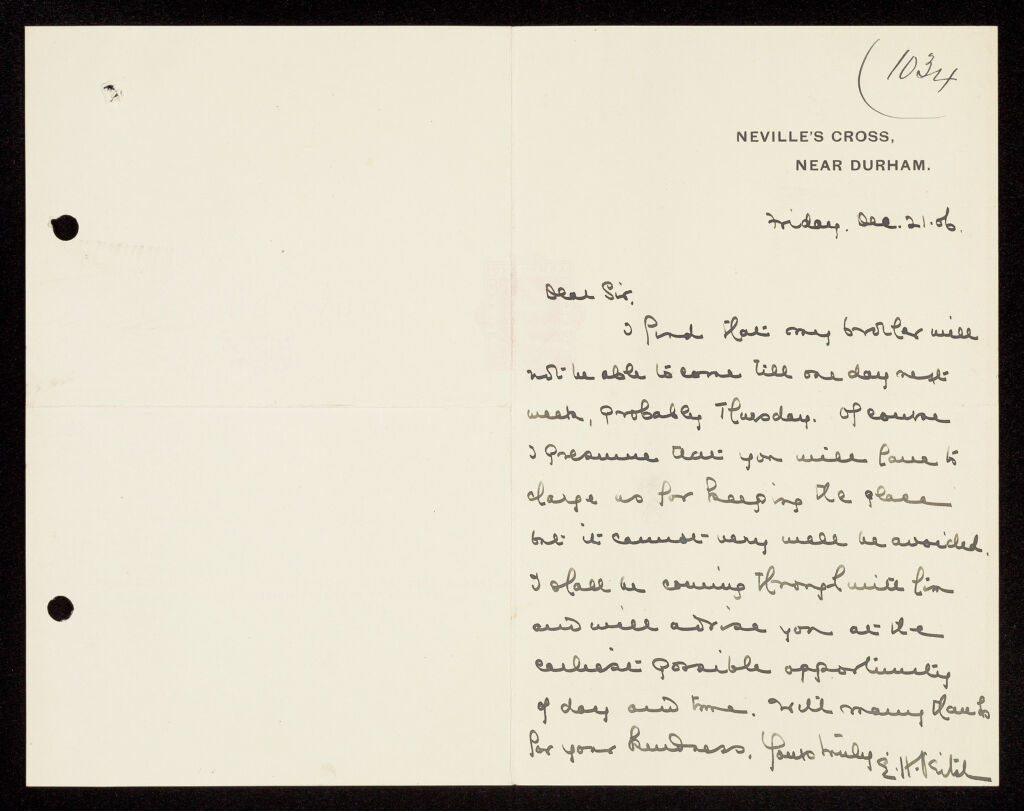 (1034
NEVILLE'S CROSS,
NEAR DURHAM.
Friday. Dec. 21. 06.
Dear Sir,
I find that my brother will
not be able to come till one day next
week, probably Thursday. Of course
I presume that you will have to
charge us for keeping the place
but it cannot very well be avoided.
I shall be coming through with him
and will advise you at the
earliest possible opportunity
of day and time. With many thanks
for your kindness. Yours truly
E. H.